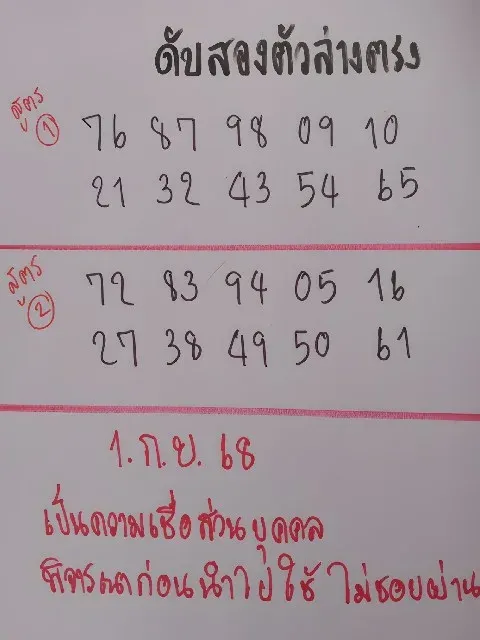 ดับสองตัวล่างตรง
สูตร
1
76 87 98 09 10
21 32 43 54 65
สูตร
2
72 83 94 05 16
27 38 49 50 61
1.ก.ย. 68
เป็นความเชื่อส่วนบุคคล
พิจรณาก่อนนำไปใช้ ไม่ชอบผ่าน